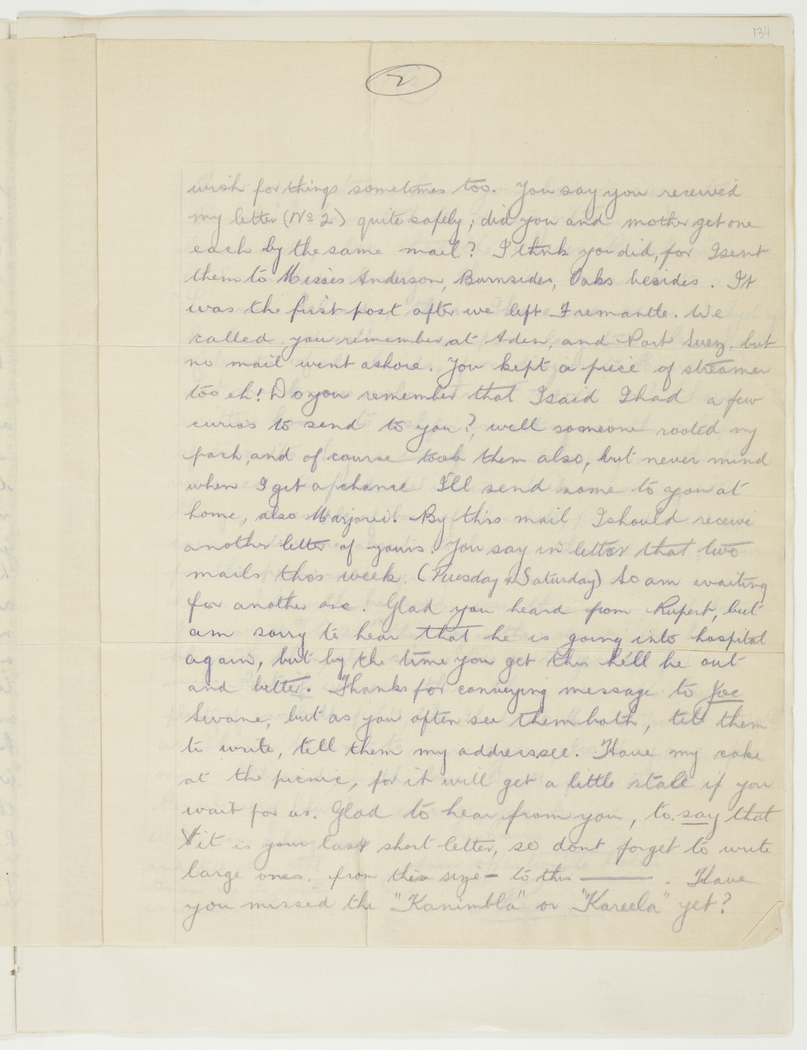 134
2
wish for things sometimes too. You say you received
my letter (No 2) quite safely; did you and mother get one
each by the same mail? I think you did, for I sent
them to Misses Anderson, Burnsides, Oaks besides. It
was the first post after we left Fremantle. We
called you remember at Aden, and Port Suez, but
no mail went ashore. You kept a piece of streamer
too eh! Do you remember that I said I had a few
curios to send to you?, well someone rooted my
pack, and of course took them also, but never mind
when I get a chance I'll send some to you at
home, also Marjorie. By this mail I should receive
another letter of yours. You say in letter that two
mails this week. (Tuesday & Saturday) So am waiting
for another one. Glad you heard from Rupert, but
am sorry to hear that he is going into hospital
again, but by the time you get this he'll be out
and better. Thanks for conveying message to Joe
Swane, but as you often see them both, tell them
to write, tell them my addresse. Have my cake
at the picnic, for it will get a little stale if you
wait for us. Glad to hear from you, to say that
it is your last short letter, so dont forget to write
large ones. from this size – to this ——— . Have
you missed the "Kanimbla" or "Kareela" yet?